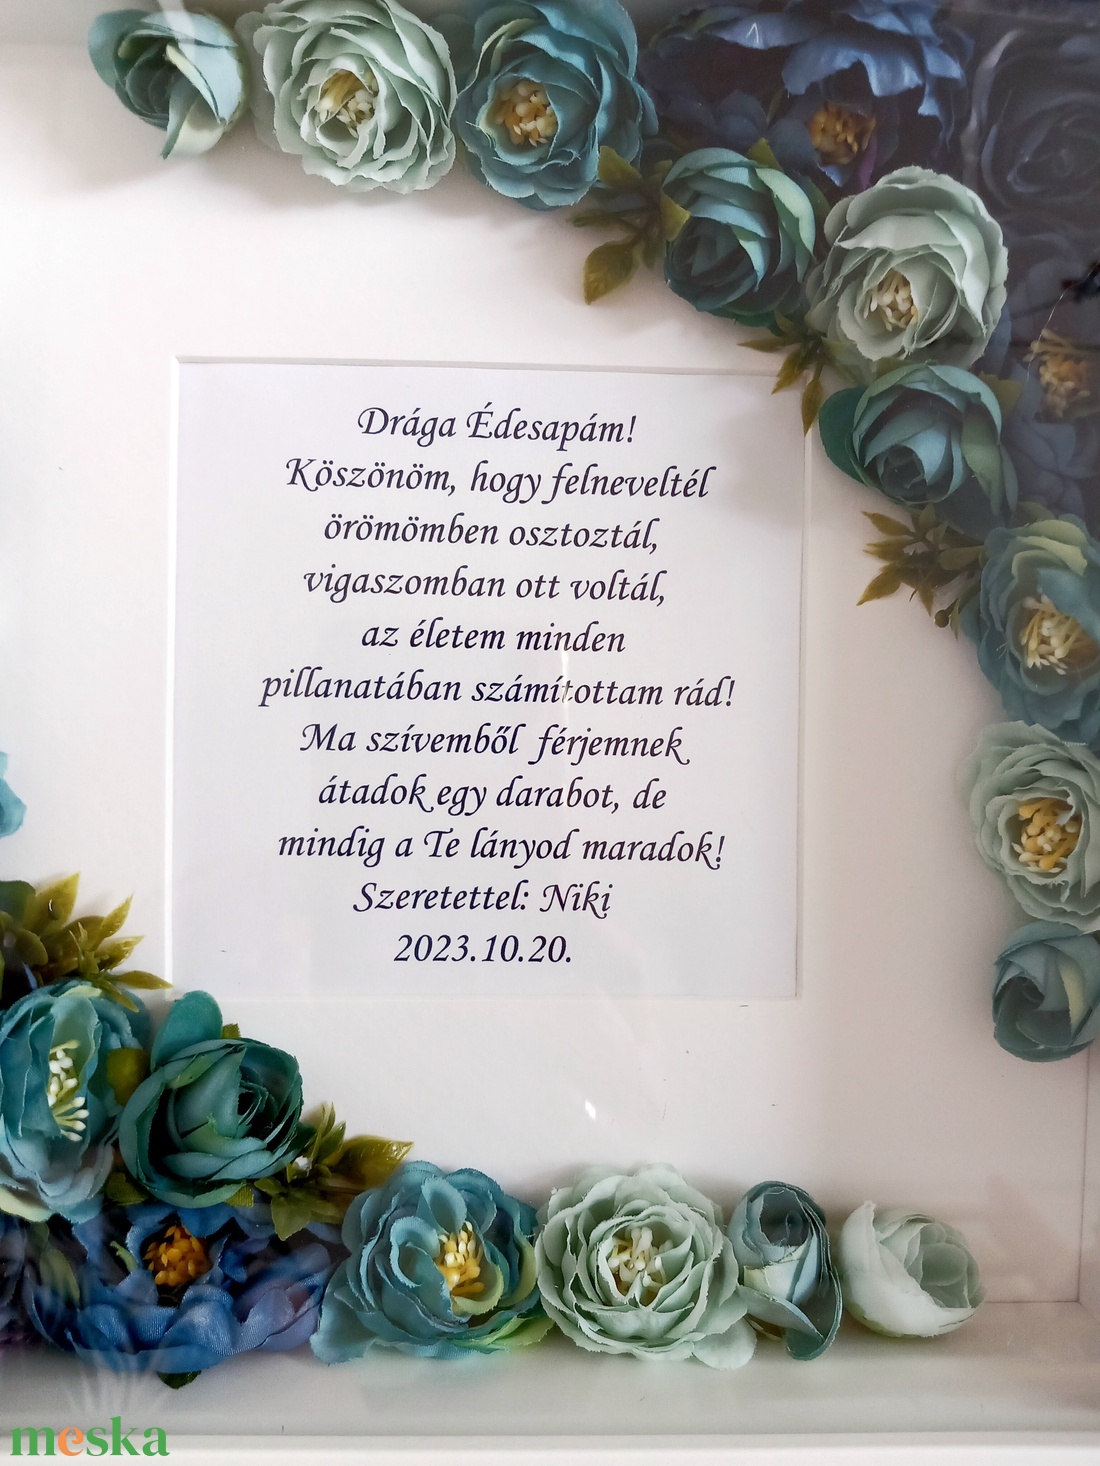 Drága Édesapám!
Köszönöm, hogy felneveltél
örömömben osztoztál,
vigaszomban ott voltál,
az életem minden
pillanatában számítottam rád!
Ma szívemből férjemnek
átadok egy darabot, de
mindig a Te lányod maradok!
Szeretettel: Niki
2023.10.20.
meska